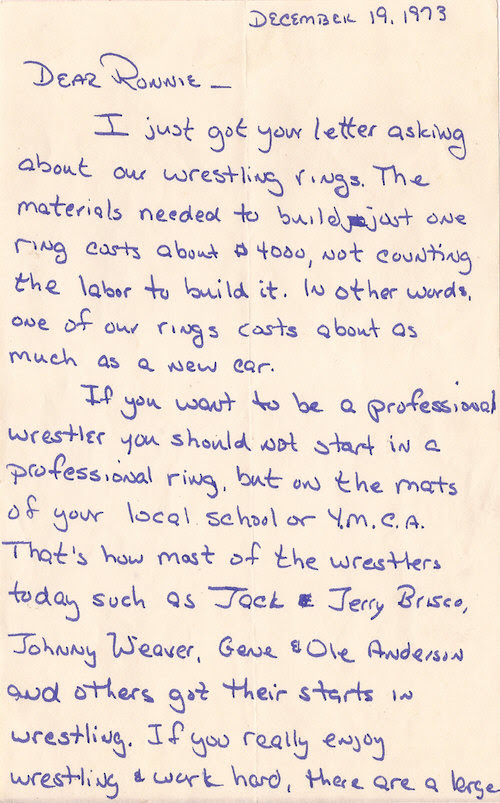 DECEMBER 19, 1973
DEAR RONNIE —
I just got your letter asking
about our wrestling rings. The
materials needed to build just one
ring costs about $4000, not counting
the labor to build it. In other words,
one of our rings costs about as
much as a new car.
If you want to be a professional
wrestler you should not start in a
professional ring, but on the mats
of your local school or Y.M.C.A.
That's how most of the wrestlers
today such as Jack & Jerry Brisco,
Johnny Weaver, Gene & Ole Anderson
and others got their starts in
wrestling. If you really enjoy
wrestling & work hard, there are a large